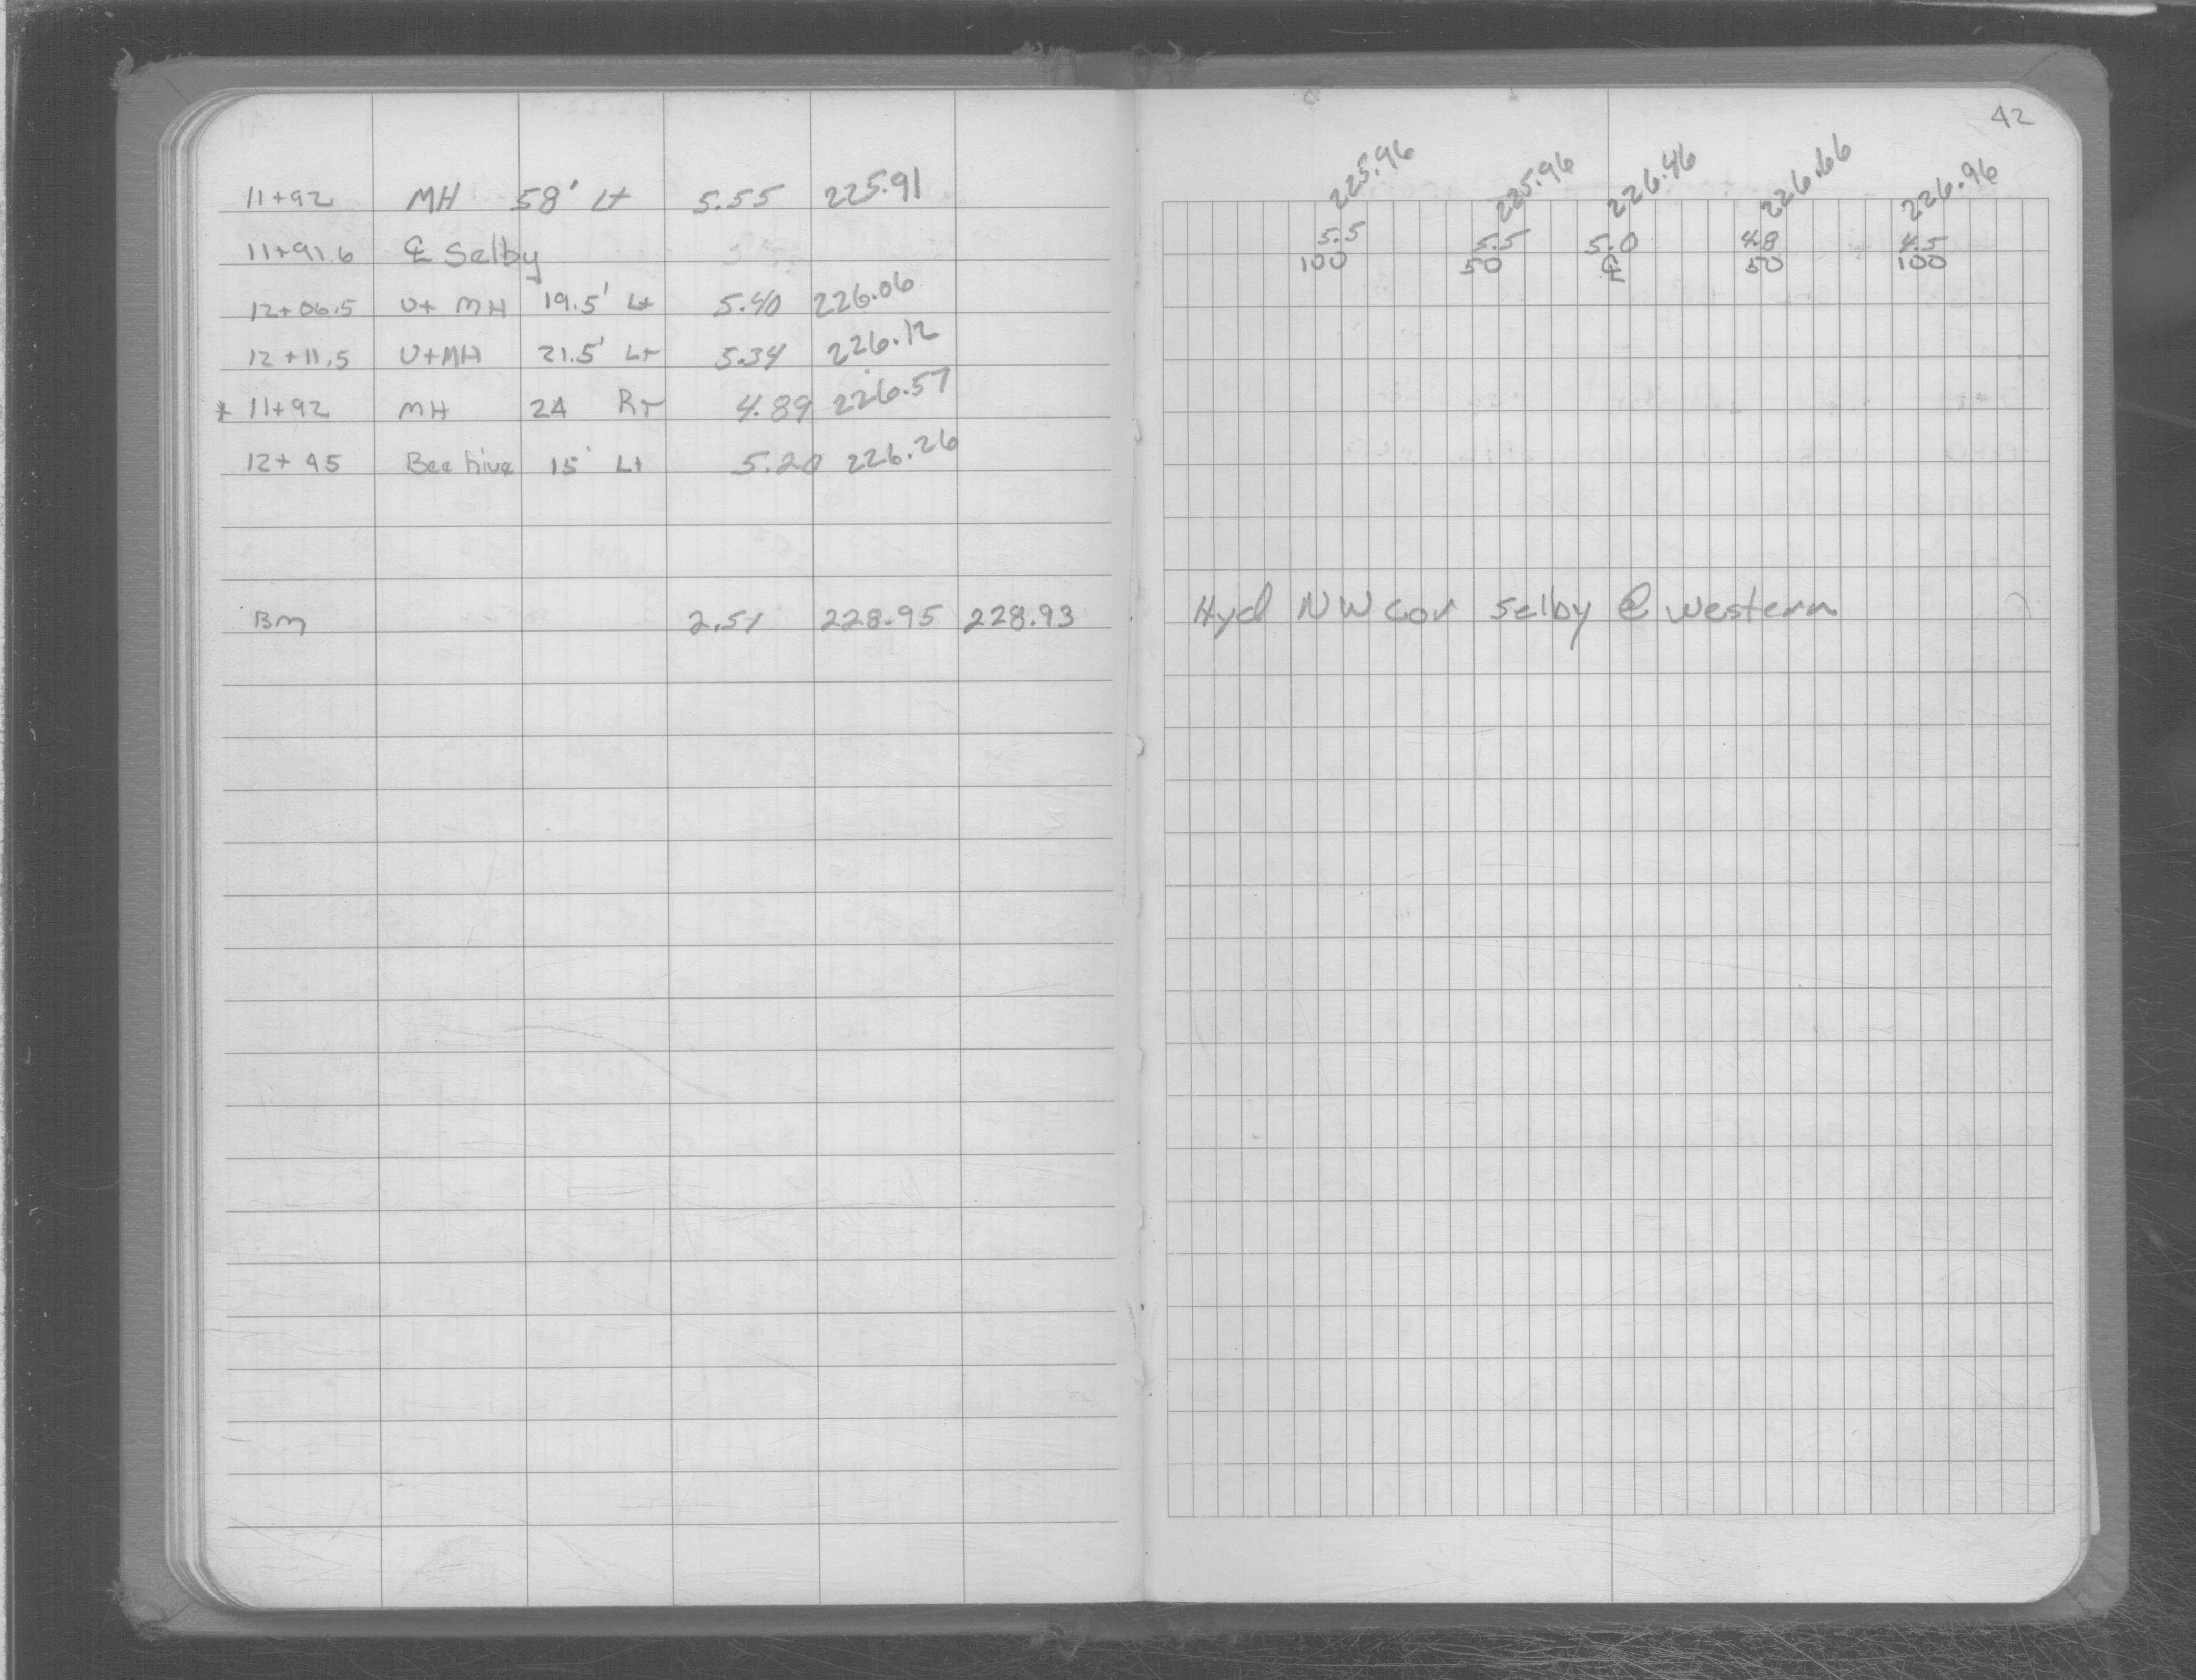 11+92 MH 58' Lt 5.55 225.91
11+91.6 ℄ Selby
12+06.5 Ut MH 19.5' Lt 5.40 226.06
12+11.5 Ut MH 21.5' Lt 5.34 226.12
* 11+92 MH 24 Rt 4.89 226.57
12+45 Bee hive 15' Lt 5.20 226.26
BM 2.51 228.95 228.93
42
225.96 225.96 226.46 226.66 226.96
5.5 5.5 5.0 4.8 4.5
100 50 ℄ 50 100
Hyd NW cor Selby @ Western